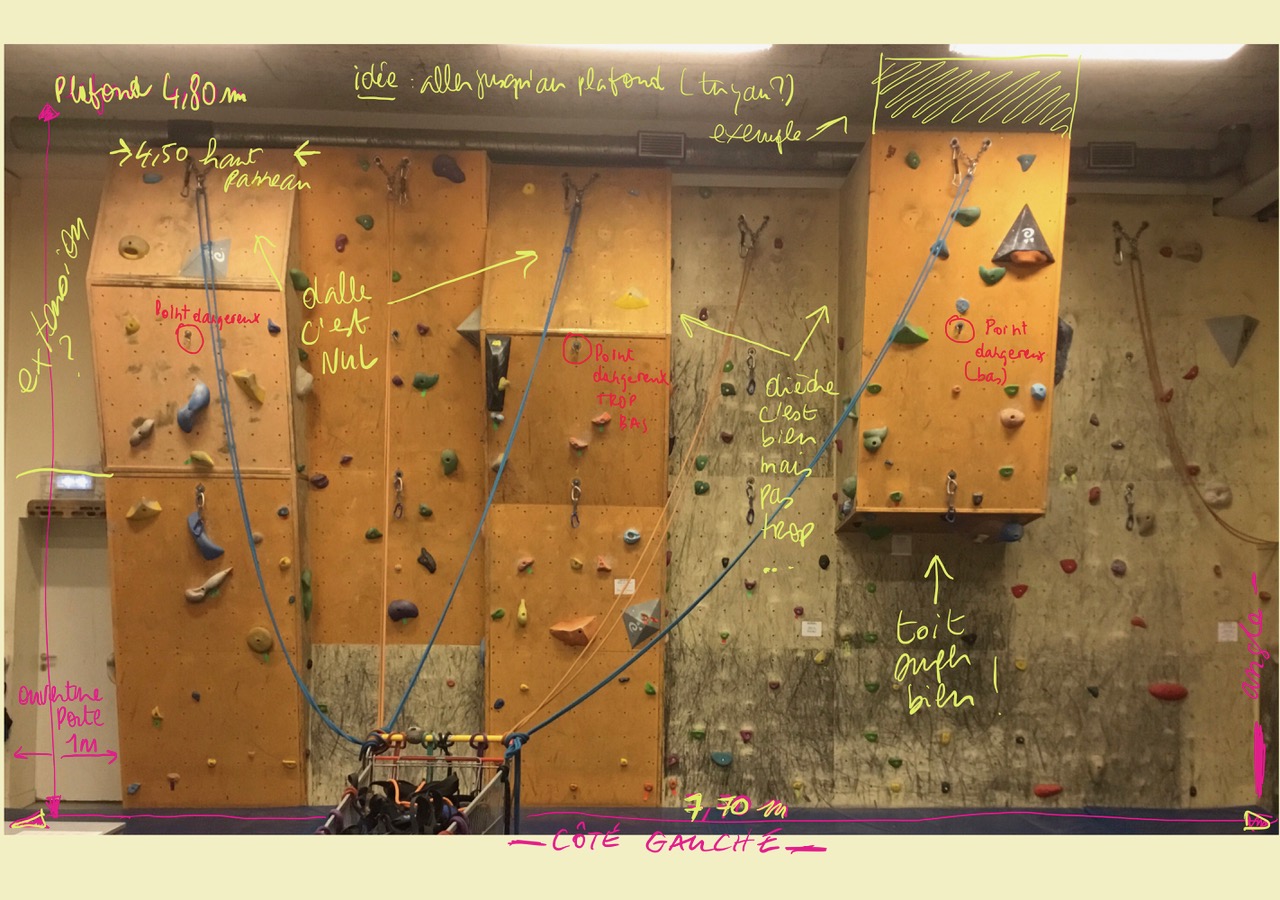 Plafond 4,80 m
idée : aller jusqu'au plafond (tuyau?)
exemple
4,50 haut
panneau
extension
?
Point dangereux
dalle
c'est
NUL
Point
dangereux
TROP
BAS
dièdre
c'est
bien
mais
pas
trop
...
Point
dangereux
(bas)
toit
super
bien !
angle
ouverture
Porte
1m
7,70 m
CÔTÉ GAUCHE